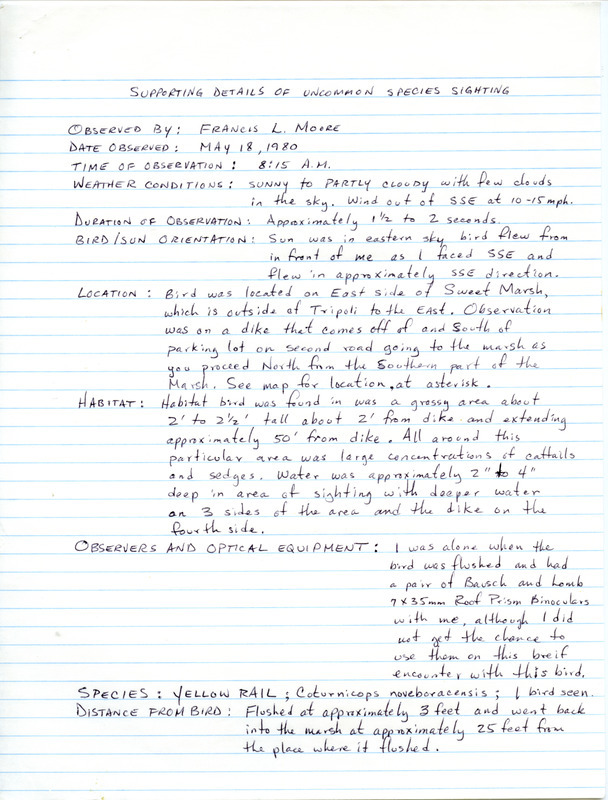 SUPPORTING DETAILS OF UNCOMMON SPECIES SIGHTING
OBSERVED BY: FRANCIS L. MOORE
DATE OBSERVED: MAY 18, 1980
TIME OF OBSERVATION: 8:15 A.M.
WEATHER CONDITIONS: SUNNY to PARTLY cloudy with few clouds
in the sky. Wind out of SSE at 10-15 mph.
DURATION OF OBSERVATION: Approximately 1 1/2 to 2 seconds.
BIRD/SUN ORIENTATION: Sun was in eastern sky, bird flew from
in front of me as I faced SSE and
flew in approximately SSE direction.
LOCATION: Bird was located on East side of Sweet Marsh,
which is outside of Tripoli to the EAST. Observation
was on a dike that comes off of and South of
parking lot on second road going to the marsh as
you proceed North from the Southern part of the
Marsh. See map for location, at asterisk.
HABITAT: Habitat bird was found in was a grassy area about
2' to 2 1/2' tall about 2' from dike and extending
approximately 50' from dike. All around this
particular area was large concentrations of cattails
and sedges. Water was approximately 2" to 4"
deep in area of sighting with deeper water
on 3 sides of the area and the dike on the
fourth side.
OBSERVERS AND OPTICAL EQUIPMENT: I was alone when the
bird was flushed and had
a pair of Bausch and Lomb
7x35mm Roof Prism Binoculars
with me, although I did
not get the chance to
use them on this breif
encounter with this bird.
SPECIES: YELLOW RAIL; Coturnicops noveboracensis; 1 bird seen.
DISTANCE FROM BIRD: Flushed at approximately 3 feet and went back
into the marsh at approximately 25 feet from
the place where it flushed.